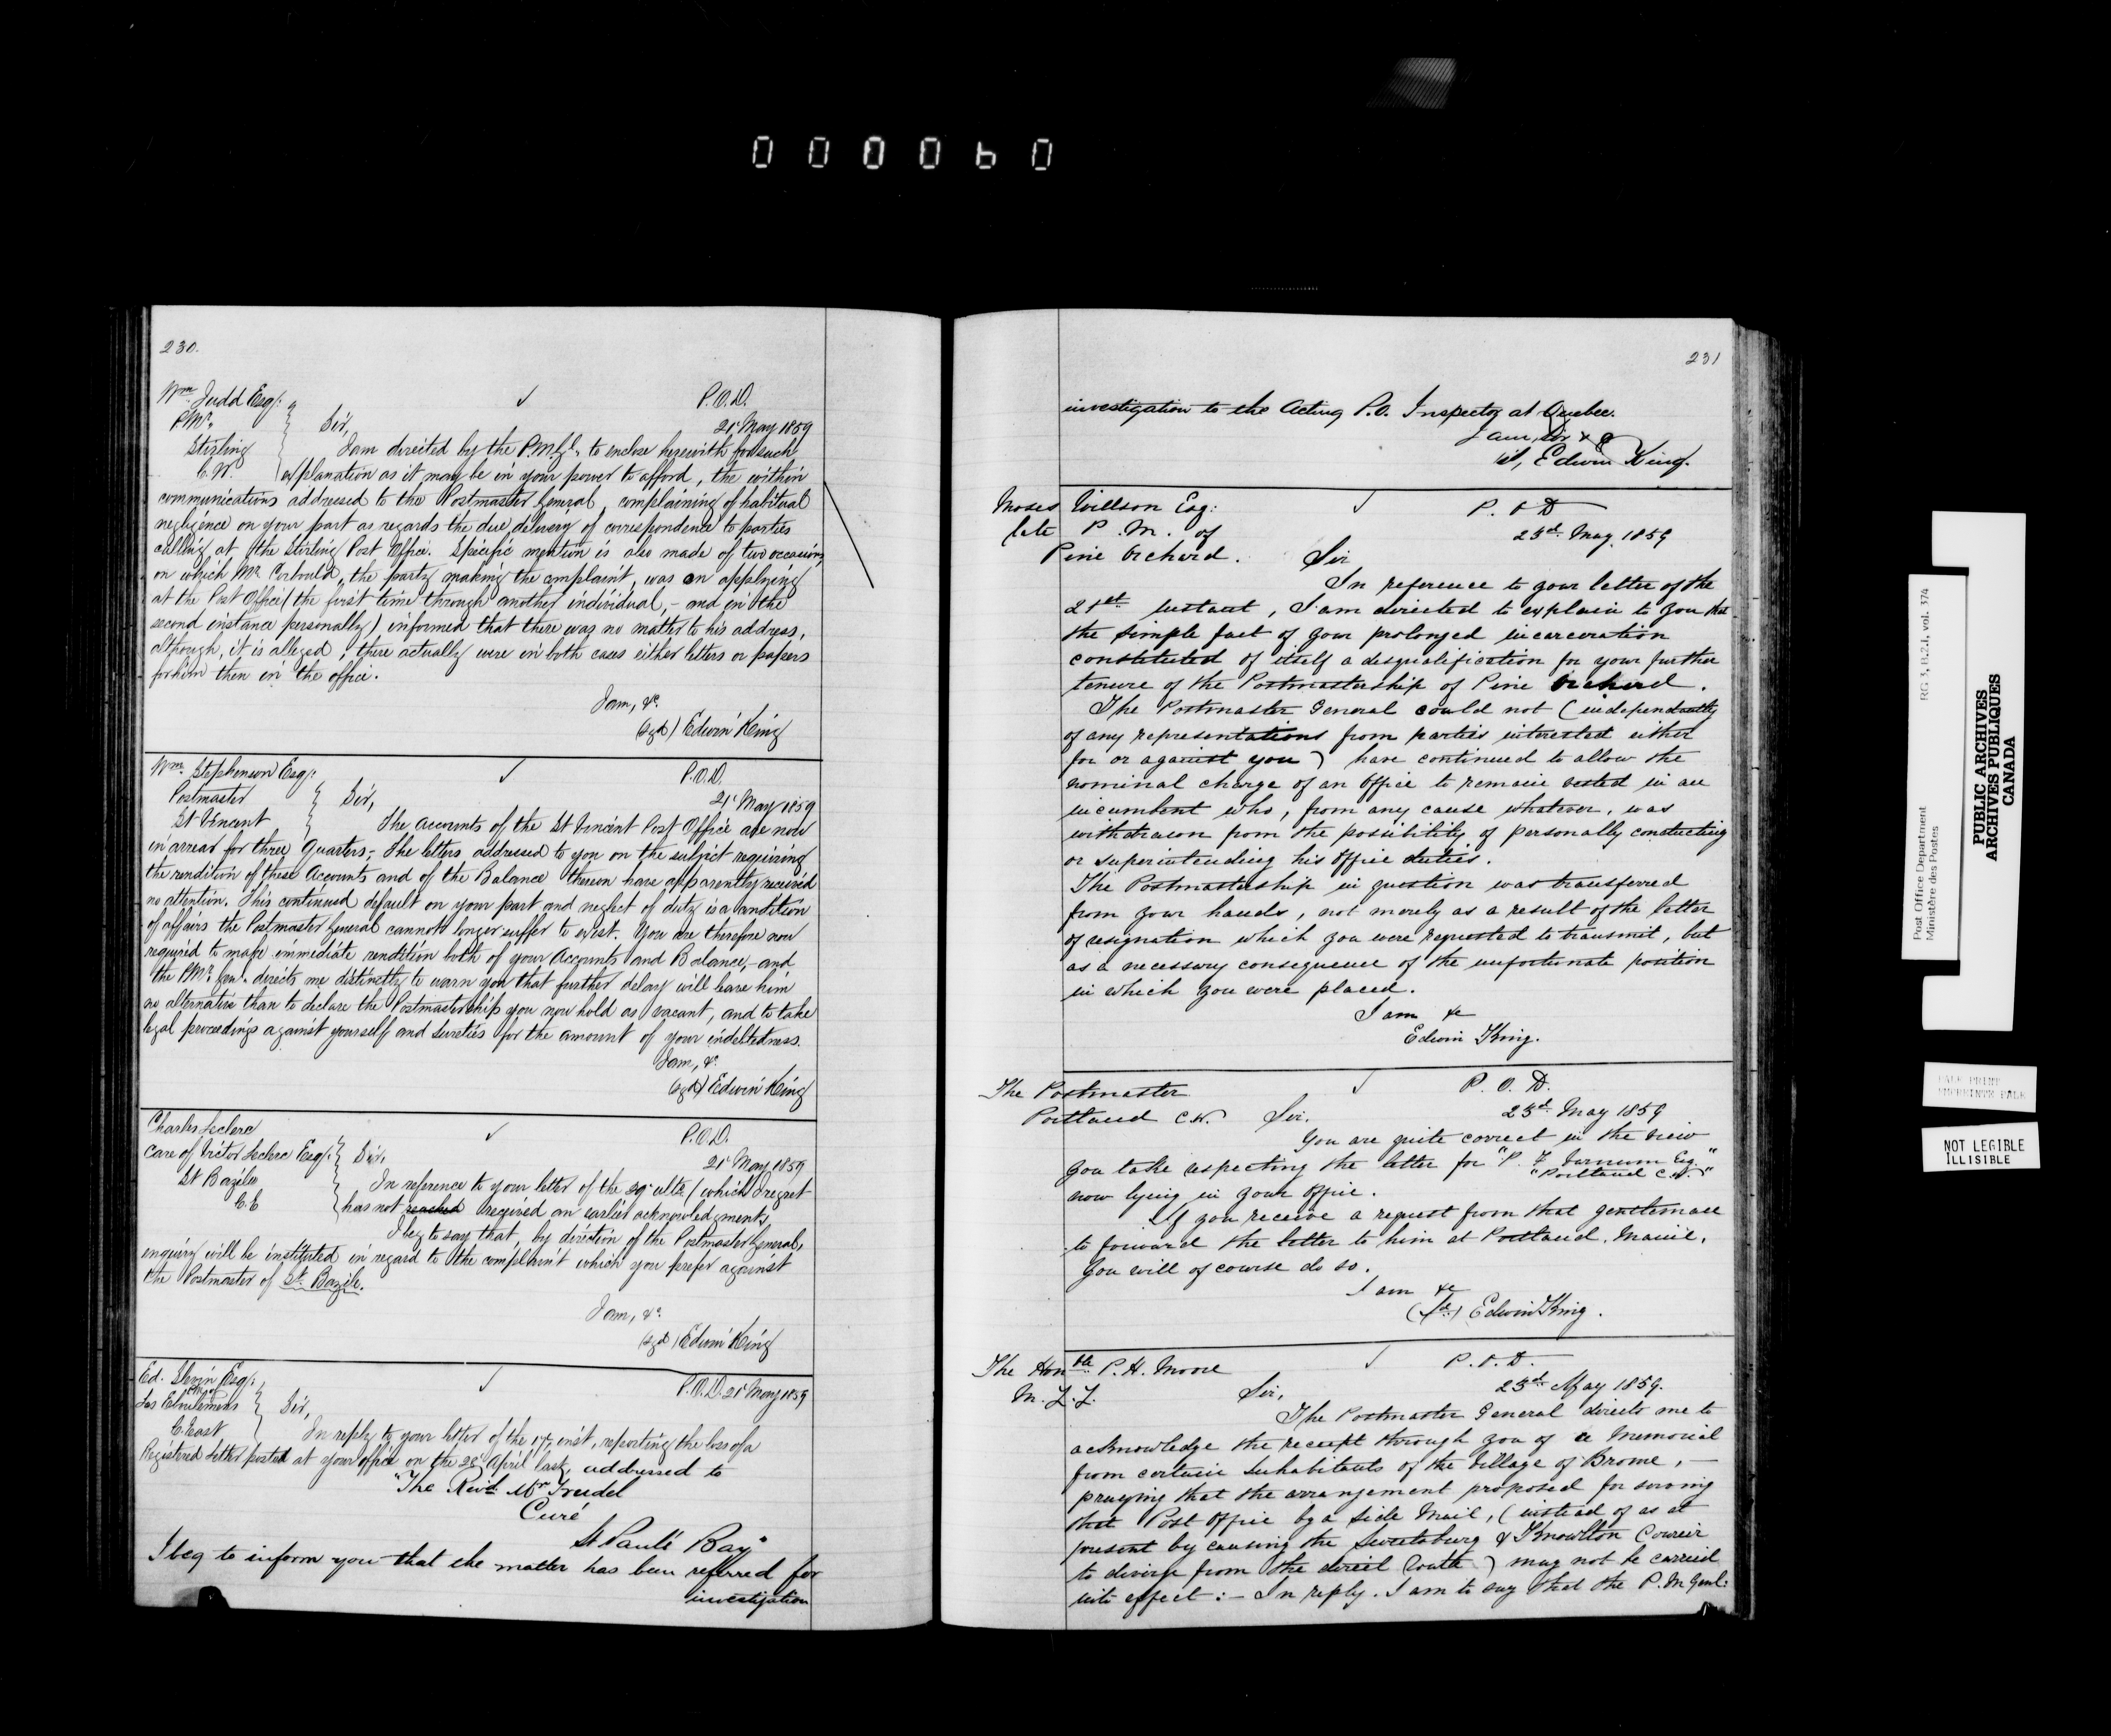 000060
230.
Wm Judd Esq:
P.Mr.
Stirling
C.W.
P.O.D.
21st May 1859
Sir,
I am directed by the P.M.Gl. to enclose herewith for such
explanation as it may be in your power to afford, the within
communications addressed to the Postmaster General, complaining of habitual
negligence on your part as regards the due delivery of correspondence to parties
calling at the Stirling Post Office. Specific mention is also made of two occasions,
on which Mr. Corbould, the party making the complaint, was on applying
at the Post Office (the first time through another individual, - and in the
second instance personally) informed that there was no matter to his address,
although, it is alleged, there actually were in both cases either letters or papers
for him then in the office.
I am, &c.
(sgd) Edwin King
Wm. Stephenson Esq:
Postmaster
St Vincent
P.O.D.
21st May 1859
Sir,
The accounts of the St Vincent Post Office are now
in arrear for three Quarters; The letters addressed to you on the subject requiring
the rendition of these Accounts and of the Balance thereon have apparently received
no attention. This continued default on your part and neglect of duty is a condition
of affairs the Postmaster General cannot longer suffer to exist. You are therefore now
required to make immediate rendition both of your Accounts and Balance, - and
the P.Mr. Gen. directs me distinctly to warn you that further delay will leave him
no alternative than to declare the Postmastership you now hold as vacant, and to take
legal proceedings against yourself and Sureties for the amount of your indebtedness.
I am, &c.
(sgd) Edwin King
Charles Leclerc
Care of Victor Leclerc Esq:
St Bazile
C.E
P.O.D.
21st May 1859
Sir,
In reference to your letter of the 29th ulto (which I regret
has not reached received an earlier acknowledgment)
I beg to say that, by direction of the Postmaster General,
enquiry will be instituted in regard to the complaint which you prefer against
the Postmaster of St. Bazile.
I am, &c.
(sgd) Edwin King
Ed. Slevin Esq:
P.M.
Les Eboulemens
C. East
P.O.D. 21st May 1859
Sir,
In reply to your letter of the 17th inst, reporting the loss of a
Registered Letter posted at your office on the 28th April last, addressed to
"The Revd. Mr Trudel
Curé
St Paul's Bay"
I beg to inform you that the matter has been referred for
investigation
231
investigation to the Acting P.O. Inspector at Quebec.
I am, Sir &c
Edwin King.
Moses Willson Esq:
late P.M. of
Pine Orchard.
P.O.D
23d. May 1859
Sir
In reference to your letter of the
21st. Instant, I am directed to explain to you that
the simple fact of your prolonged incarceration
constituted of itself a disqualification for your further
tenure of the Postmastership of Pine Orchard.
The Postmaster General could not (independently
of any representations from parties interested either
for or against you) have continued to allow the
nominal charge of an office to remain vested in an
incumbent who, from any cause whatever, was
withdrawn from the possibility of personally conducting
or superintending his Office duties.
The Postmastership in question was transferred
from your hands, not merely as a result of the letter
of resignation which you were requested to transmit, but
as a necessary consequence of the unfortunate position
in which you were placed.
I am &c
Edwin King.
The Postmaster
Portland C.W.
P.O.D.
23d. May 1859
Sir,
You are quite correct in the view
you take respecting the letter for "P. F. Varnum Esq."
"Portland C.W."
now lying in your Office.
If you receive a request from that gentleman
to forward the letter to him at Portland, Maine,
you will of course do so.
I am &c
(sd.) Edwin King.
The Honble P.H. Moore
M.L.L.
P.O.D.
23d. May 1859.
Sir,
The Postmaster General directs me to
acknowledge the receipt through you of a Memorial
from certain Inhabitants of the Village of Brome, —
praying that the arrangement proposed for serving
that Post Office by a Side Mail, (instead of as at
present by causing the Sweetsburg & Knowlton Courier
to diverge from the direct Route) may not be carried
into effect: — In reply, I am to say that the P.M. Genl:
Post Office Department
Ministère des Postes
RG 3, B.2.1, vol. 374
PUBLIC ARCHIVES
ARCHIVES PUBLIQUES
CANADA
PALE PRINT
EMPREINTE PALE
NOT LEGIBLE
ILLISIBLE